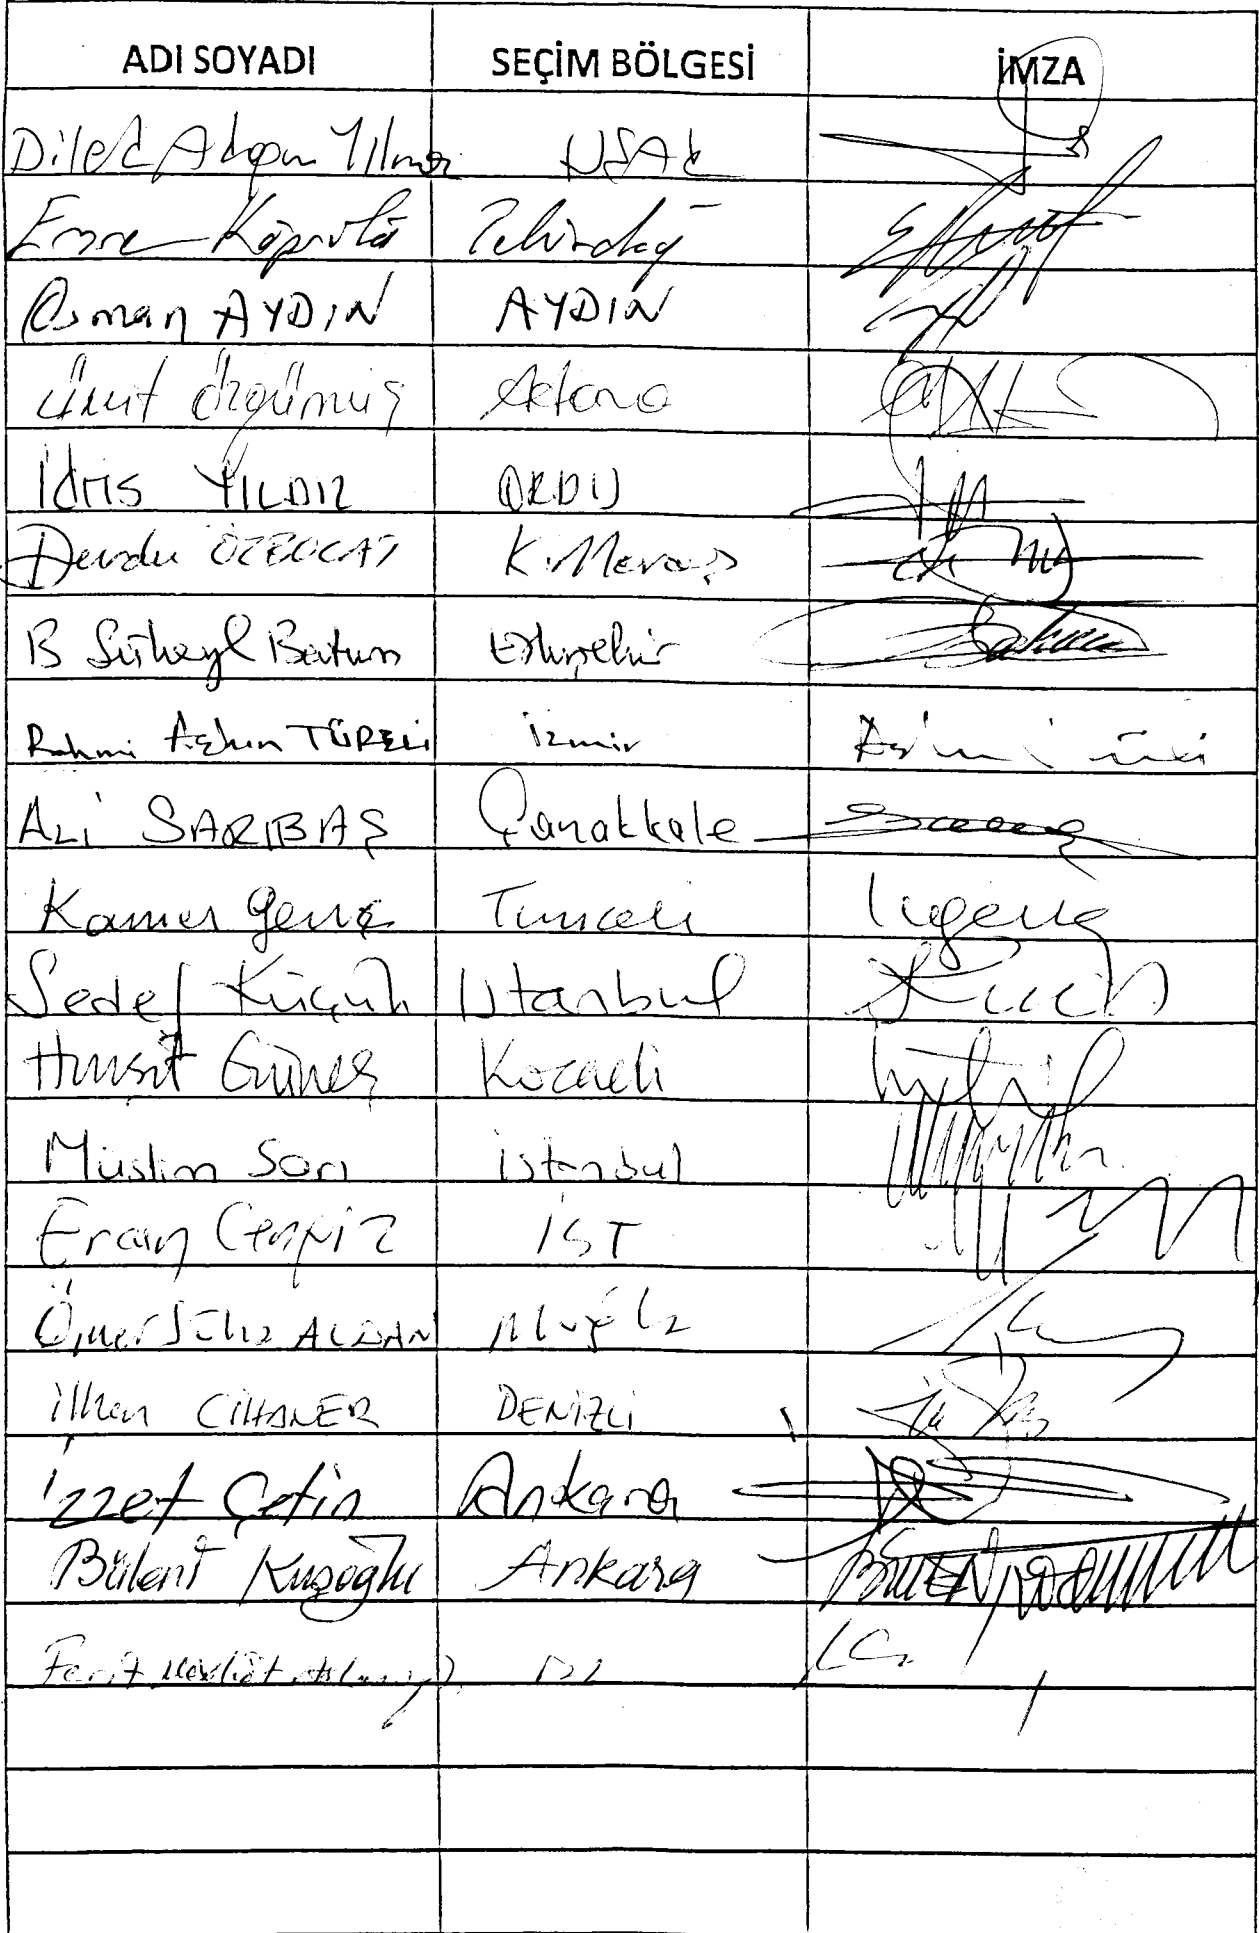 ADI SOYADI SEÇİM BÖLGESİ İMZA
Dilek Akagün Yılmaz UŞAK
Emre Köprülü Tekirdağ
Osman AYDIN AYDIN
Ümit Özgümüş Adana
İdris YILDIZ ORDU
Durdu ÖZBOLAT K.Maraş
B Süheyl Batum Eskişehir
Rahmi Aşkın TÜRELİ İzmir
ALİ SARIBAŞ Çanakkale
Kamer Genç Tunceli
Sedef Küçük İstanbul
Hurşit Güneş Kocaeli
Müslim Sarı İstanbul
Ercan Cengiz İST
Ömer Süha ALDAN Muğla
İlhan CİHANER DENİZLİ
İzzet Çetin Ankara
Bülent Kuşoğlu Ankara
Ferit Mevlüt